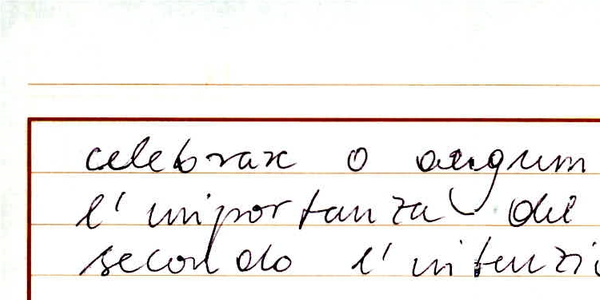 celebrare o
l'importanza del
secondo l'intenzi